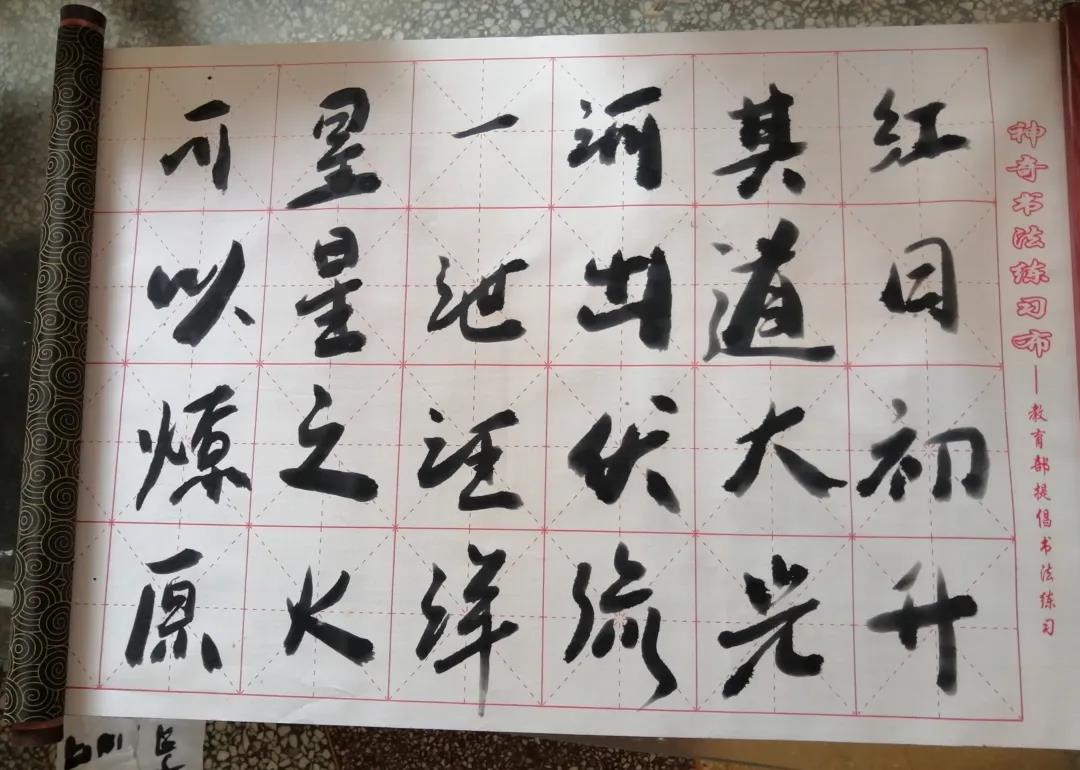 神奇书法练习布—教育部提倡书法练习
红日初升
其道大光
河出伏流
一泄汪洋
星星之火
可以燎原